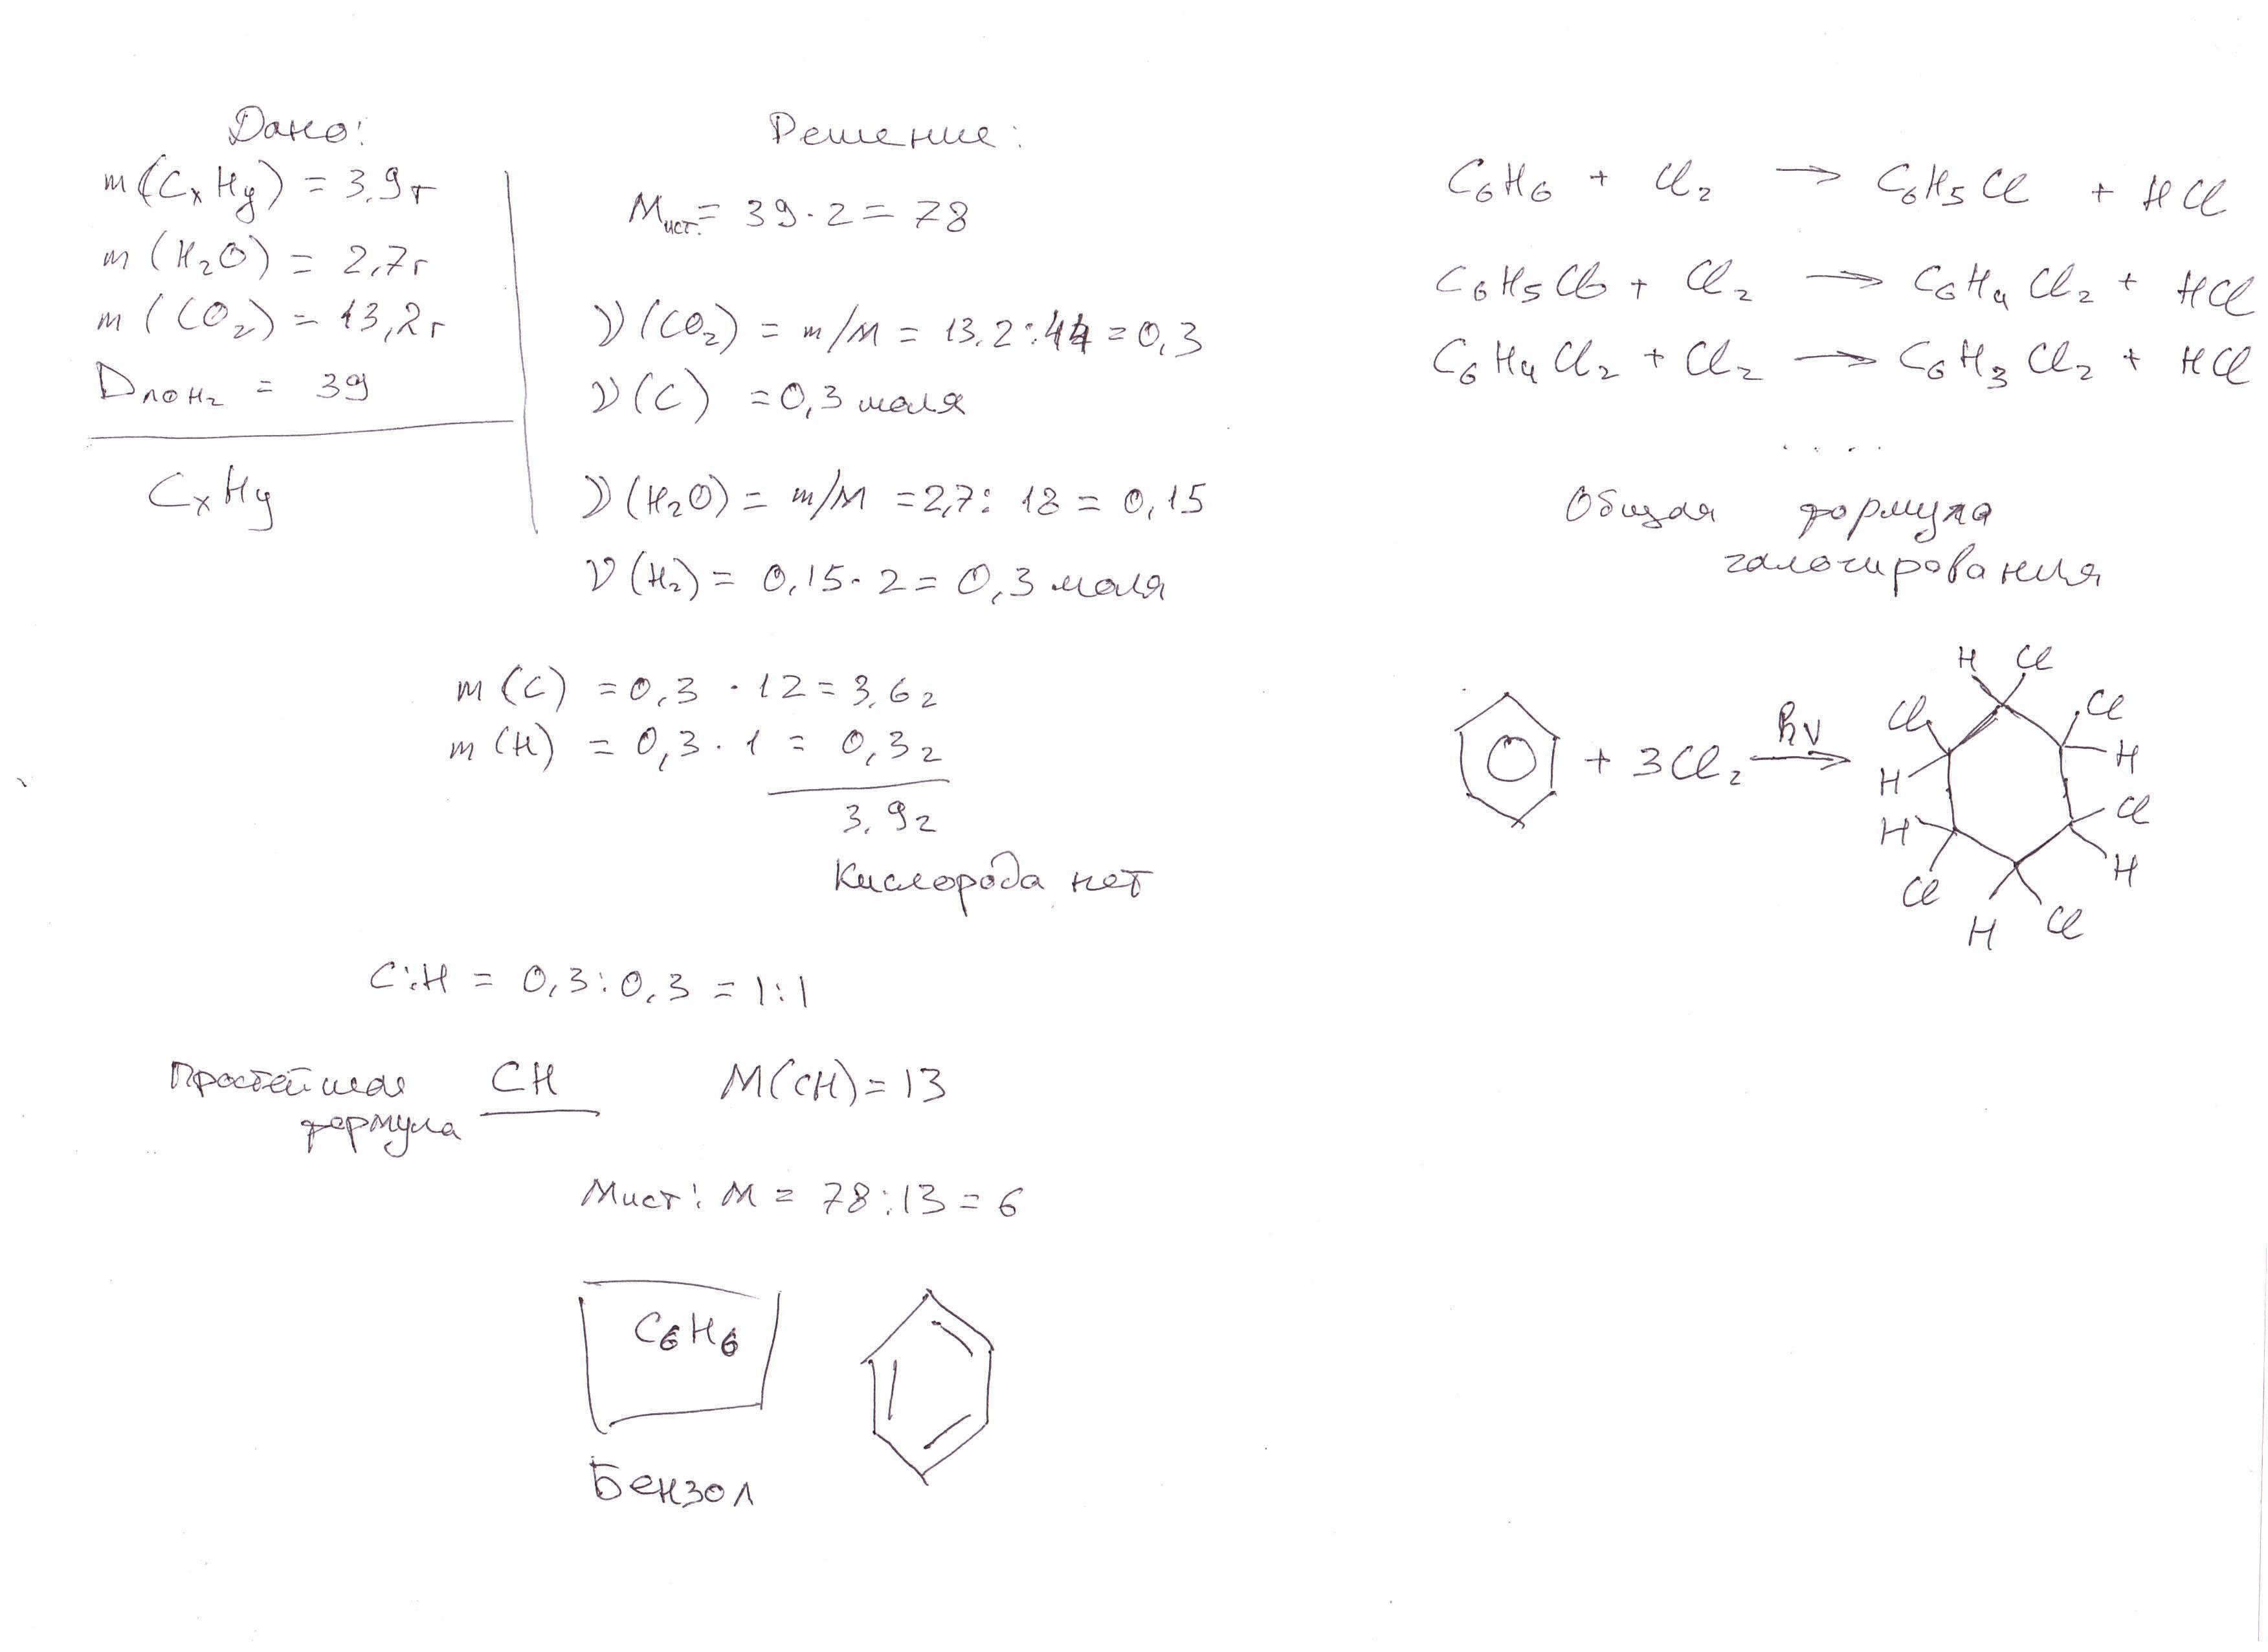 Дано:
m(CxHy) = 3,9г
m(H₂O) = 2,7г
m(CO₂) = 13,2г
D по H₂ = 39
CxHy
Решение:
Mист. = 39·2 = 78
ν(CO₂) = m/M = 13,2:44 = 0,3
ν(C) = 0,3 моля
ν(H₂O) = m/M = 2,7:18 = 0,15
ν(H₂) = 0,15·2 = 0,3 моля
m(C) = 0,3 · 12 = 3,6г
m(H) = 0,3 · 1 = 0,3г
3,9г
Кислорода нет
C:H = 0,3:0,3 = 1:1
Простейшая CH M(CH) = 13
формула
Mист : M = 78:13 = 6
C₆H₆
Бензол
C₆H₆ + Cl₂ → C₆H₅Cl + HCl
C₆H₅Cl + Cl₂ → C₆H₄Cl₂ + HCl
C₆H₄Cl₂ + Cl₂ → C₆H₃Cl₂ + HCl
. . . .
Общая формула
галогирования
H Cl
Cl Cl
+ 3Cl₂ hν → H
H
H Cl
Cl H
H Cl